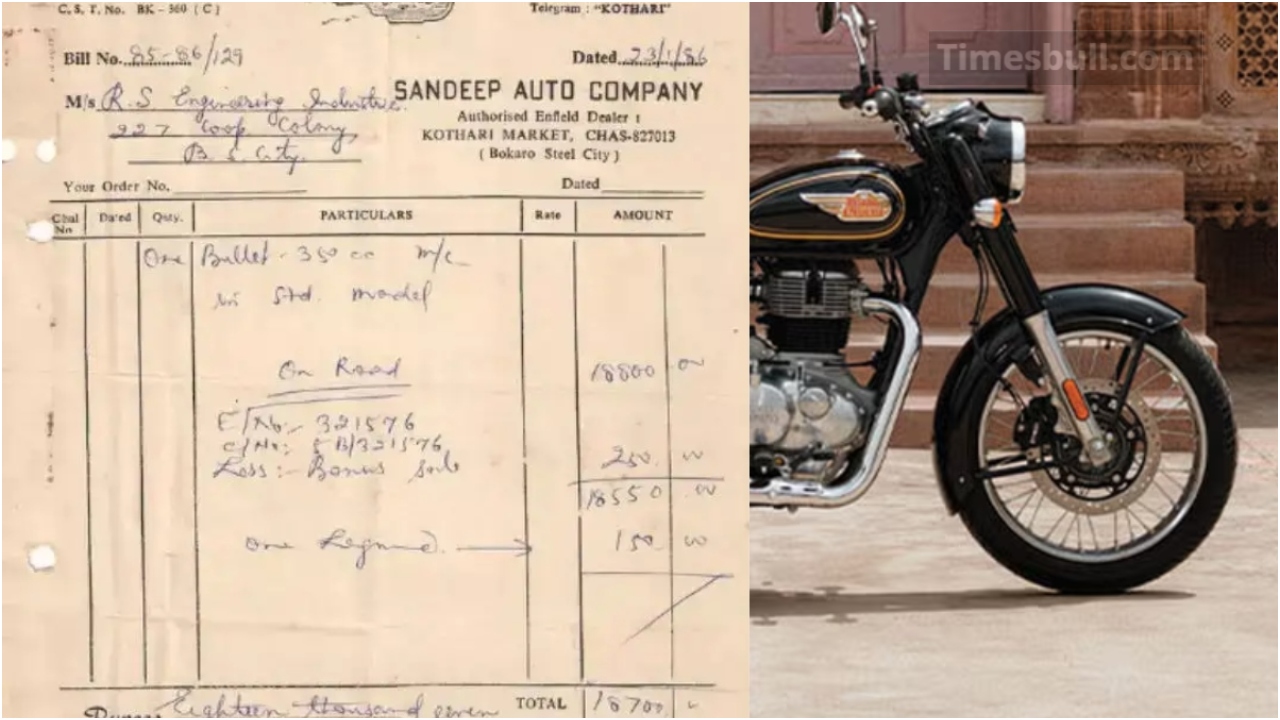 C. S. T. No. BK - 360 ( C )
Telegram : "KOTHARI"
Bill No. 85-86/129
Dated 23/1/86
M/s R.S. Engineering Industries.
927 Coop Colony,
B. S. City.
SANDEEP AUTO COMPANY
Authorised Enfield Dealer :
KOTHARI MARKET, CHAS-827013
( Bokaro Steel City )
Your Order No.
Dated
Chal No Dated Qnty. PARTICULARS Rate AMOUNT
One Bullet - 350 cc m/c
in Std. model
On Road 18800 00
E/No:- 321576
C/No:- 5B/321576
Less :- Bonus 250 00
18550 00
One 150 00
Rupees Eighteen thousand seven
TOTAL 18700
Timesbull.com